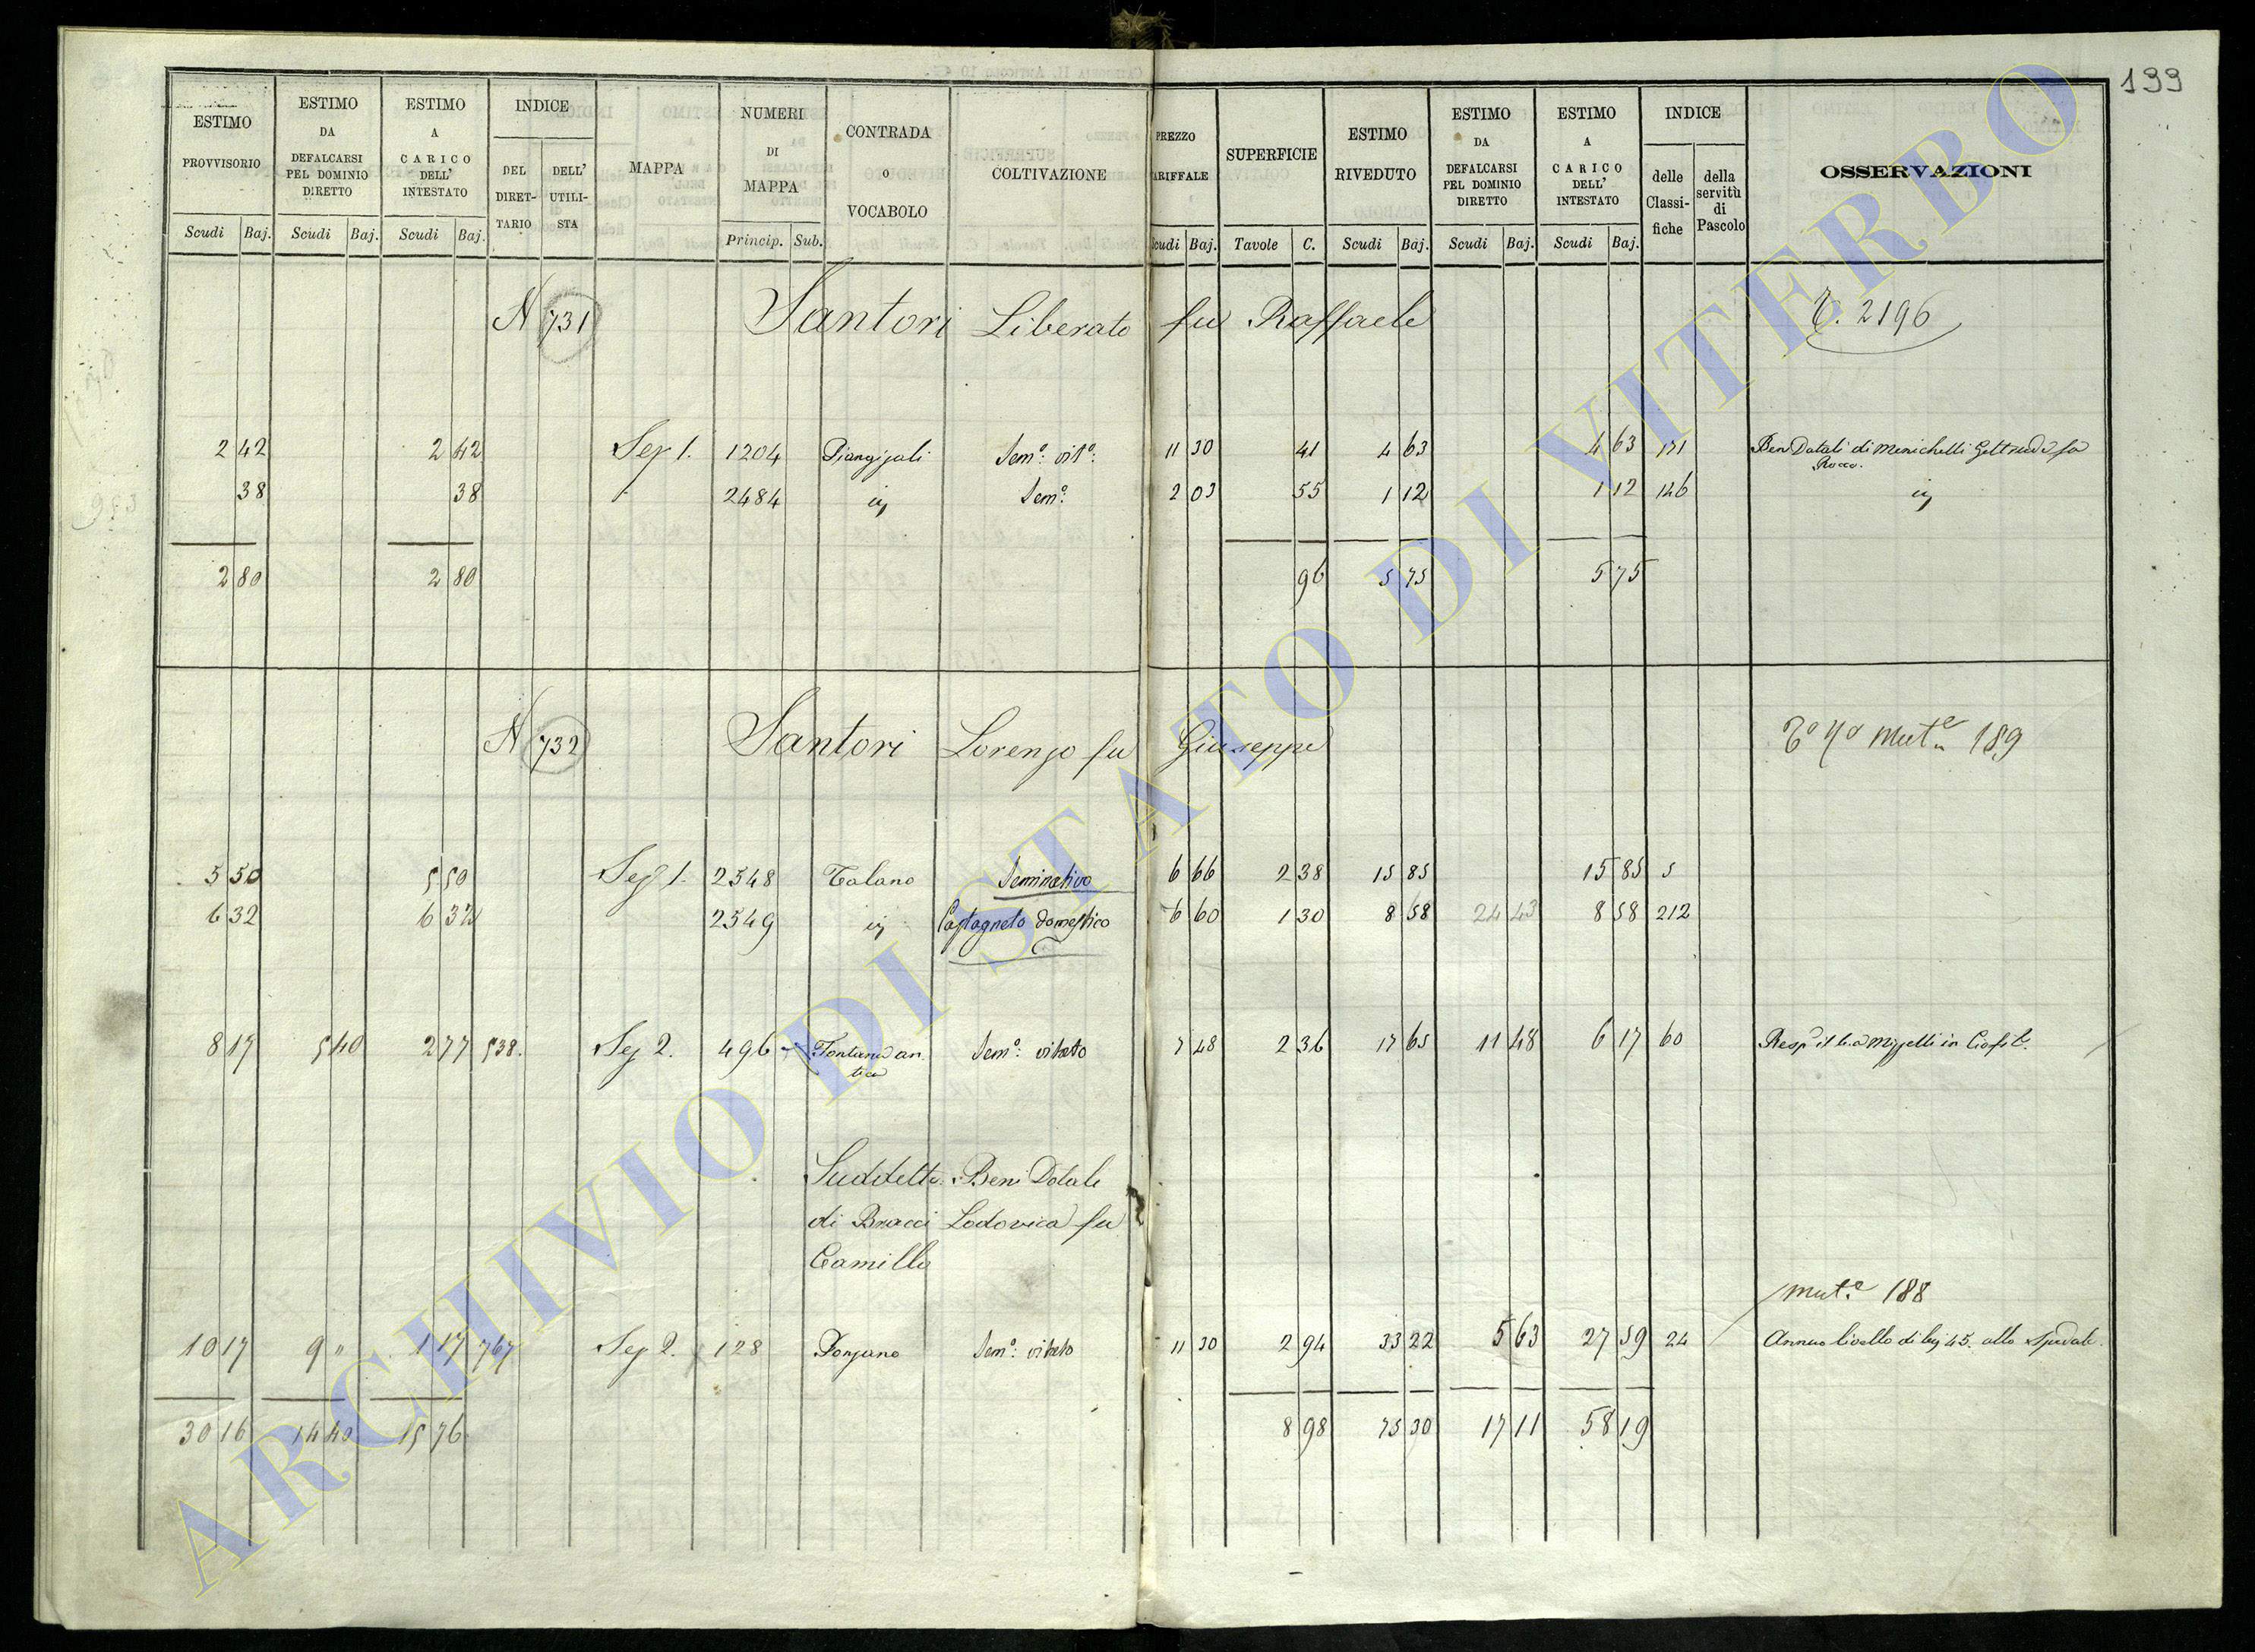 199
ESTIMO PROVVISORIO Scudi Baj.
ESTIMO DA DEFALCARSI PEL DOMINIO DIRETTO Scudi Baj.
ESTIMO A CARICO DELL' INTESTATO Scudi Baj.
INDICE DEL DIRET-TARIO DELL' UTILI-STA
MAPPA
NUMERI DI MAPPA Princip. Sub.
CONTRADA O VOCABOLO
COLTIVAZIONE
PREZZO TARIFFALE Scudi Baj.
SUPERFICIE Tavole C.
ESTIMO RIVEDUTO Scudi Baj.
ESTIMO DA DEFALCARSI PEL DOMINIO DIRETTO Scudi Baj.
ESTIMO A CARICO DELL' INTESTATO Scudi Baj.
INDICE delle Classi-fiche della servitù di Pascolo
OSSERVAZIONI
N 731 Santori Liberato fu Raffaele 2196
2 42 2 42 Sez 1. 1204 Sem.º vit.º 11 30 41 4 63 4 63 171 Beni Dotali di Menichelli Geltrude fu
Rocco.
38 38 2484 Sem.º 2 03 55 1 12 1 12 126
2 80 2 80 96 5 75 5 75
N 732 Santori Lorenzo fu Giuseppe Mut.e 189
5 50 5 50 Sez 1. 2548 Talano Seminativo 6 66 2 38 15 85 15 85 5
6 32 6 32 2549 Castagneto domestico 6 60 1 30 8 58 24 43 8 58 212
8 17 5 40 2 77 538. Sez 2. 496 Fontana an.
tica Sem.º vitato 7 48 2 36 17 65 11 48 6 17 60
Suddetto. Beni Dotali
di Bracci Lodovica fu
Camillo
Mut.e 188
10 17 9 " 1 17 767 Sez 2. 128 Ponzano Sem.º vitato 11 30 2 94 33 22 5 63 27 59 24 Annuo livello di bj 45. allo Spedale.
30 16 14 40 15 76 8 98 75 30 17 11 58 19
ARCHIVIO DI STATO DI VITERBO